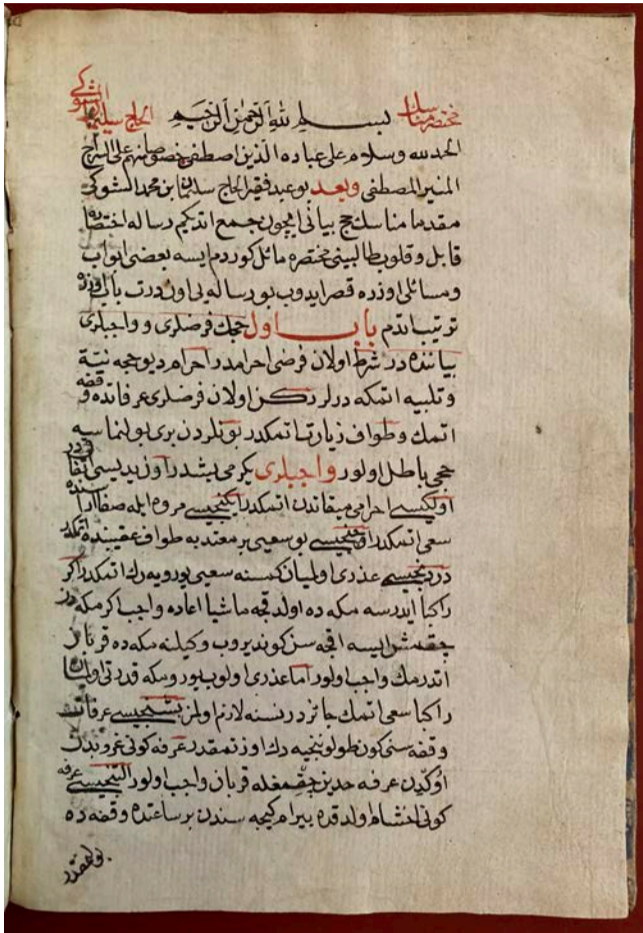 مختصر مناسك بسم الله الرحمن الرحيم الحاج سليمان الشوكى
الحمد لله وسلام على عباده الذين اصطفى خصوصا منهم على السراج
المنير المصطفى وبعد بو عبد فقير الحاج سليمان ابن محمد الشوكى
مقدما مناسك حج بيانى ايچون جمع اتدكم رساله اختصاره
قابل وقلوب طالبينى مختصره مائل كوردم ايسه بعضى ابواب
ومسائلى اوزده قصر ايدوب بو رساله يى اون درت باب اوزره
ترتيب اتدم باب اول حجك فرضلرى و واجبلرى
بياننده در شرط اولان فرضى احرامدر احرام ديو حجه نيتة
و تلبيه اتمكه درلر ركن اولان فرضلرى عرفاتده وقفه
اتمك وطواف زيارت اتمكدر بونلردن برى بولنماسه
حجى باطل اولور واجبلرى يكرمى بشدر اون يديسى اتفاقيدر
اولكيسى احرامى ميقاتدن اتمكدر ايكنجيسى مروه ايله صفا اراسنده
سعى اتمكدر اوچنجيسى بو سعيى بر معتد به طواف عقيبنده اتمكدر
دردنجيسى عذرى اوليان كمسنه سعيى يورويه رك اتمكدر اكر
راكبا ايدرسه مكه ده اولدقجه ماشيا اعاده واجب اكر مكه دن
چقمش ايسه اقچه سن كوندروب وكيلنه مكه ده قربان
اتدرمك واجب اولور اما عذرى اولوب يورومكه قدرتى اولمسا
راكبا سعى اتمك جائزدر نسنه لازم اولمز بشنجيسى عرفات
وقفه سنى كون طولونجيه دك اوزتمقدر عرفه كونى غروبدن
اوكدين عرفه حدين چقمغله قربان واجب اولور التنجيسى عرفه
كونى اخشام اولدقده بيرام كيجه سندن بر ساعتده وقفه ده
بولنمقدر